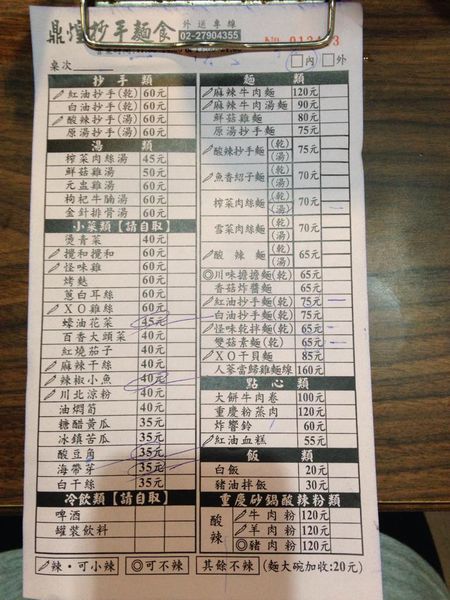 鼎煌抄手麵食
外送專線
02-27904355
桌次
內 外
抄手類
紅油抄手(乾) 60元
白油抄手(乾) 60元
酸辣抄手(湯) 60元
原湯抄手(湯) 60元
湯類
榨菜肉絲湯 45元
鮮菇雞湯 50元
元盅雞湯 60元
枸杞牛腩湯 60元
金針排骨湯 60元
小菜類【請自取】
燙青菜 40元
攪和攪和 60元
怪味雞 60元
烤麩 60元
蔥白耳絲 60元
XO雞絲 60元
蠔油花菜 45元
百香大頭菜 40元
紅燒茄子 40元
麻辣干絲 40元
辣椒小魚 40元
川北涼粉 40元
油燜筍 40元
糖醋黃瓜 35元
冰鎮苦瓜 35元
酸豆角 35元
海帶芽 35元
白干絲 35元
冷飲類【請自取】
啤酒
罐裝飲料
麵類
麻辣牛肉麵 120元
麻辣牛肉湯麵 90元
鮮菇雞麵 80元
原湯抄手麵 75元
酸辣抄手麵 (乾)(湯) 75元
魚香紹子麵 (乾)(湯) 70元
榨菜肉絲麵 (乾)(湯) 70元
雪菜肉絲麵 (乾)(湯) 70元
酸辣麵 (乾)(湯) 65元
◎川味擔擔麵(乾) 65元
香菇炸醬麵 65元
紅油抄手麵(乾) 75元
白油抄手麵(乾) 75元
怪味乾拌麵(乾) 65元
雙菇素麵(乾) 65元
XO干貝麵 85元
人蔘當歸雞麵線 160元
點心類
大餅牛肉卷 100元
重慶粉蒸肉 120元
炸響鈴 60元
紅油血糕 55元
飯類
白飯 20元
豬油拌飯 30元
重慶砂鍋酸辣粉類
酸辣
牛肉粉 120元
羊肉粉 120元
◎豬肉粉 120元
辣・可小辣 ◎可不辣 其餘不辣 (麵大碗加收:20元)